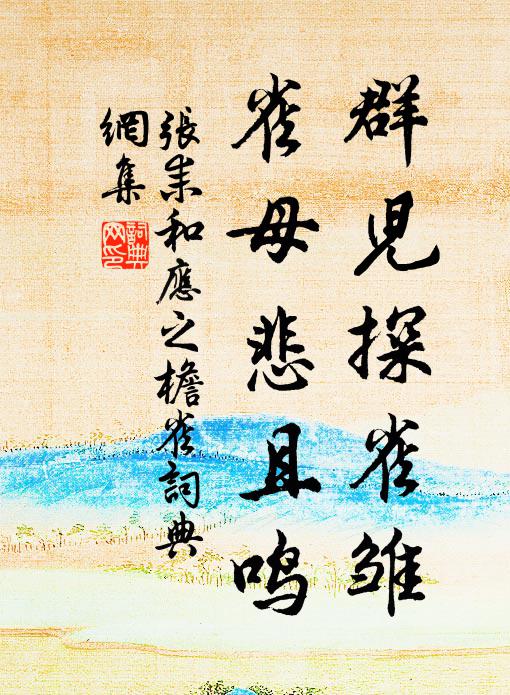 群兒探雀雛
雀母悲且鳴
張耒和應之檐雀詞典
網集
詞典網印